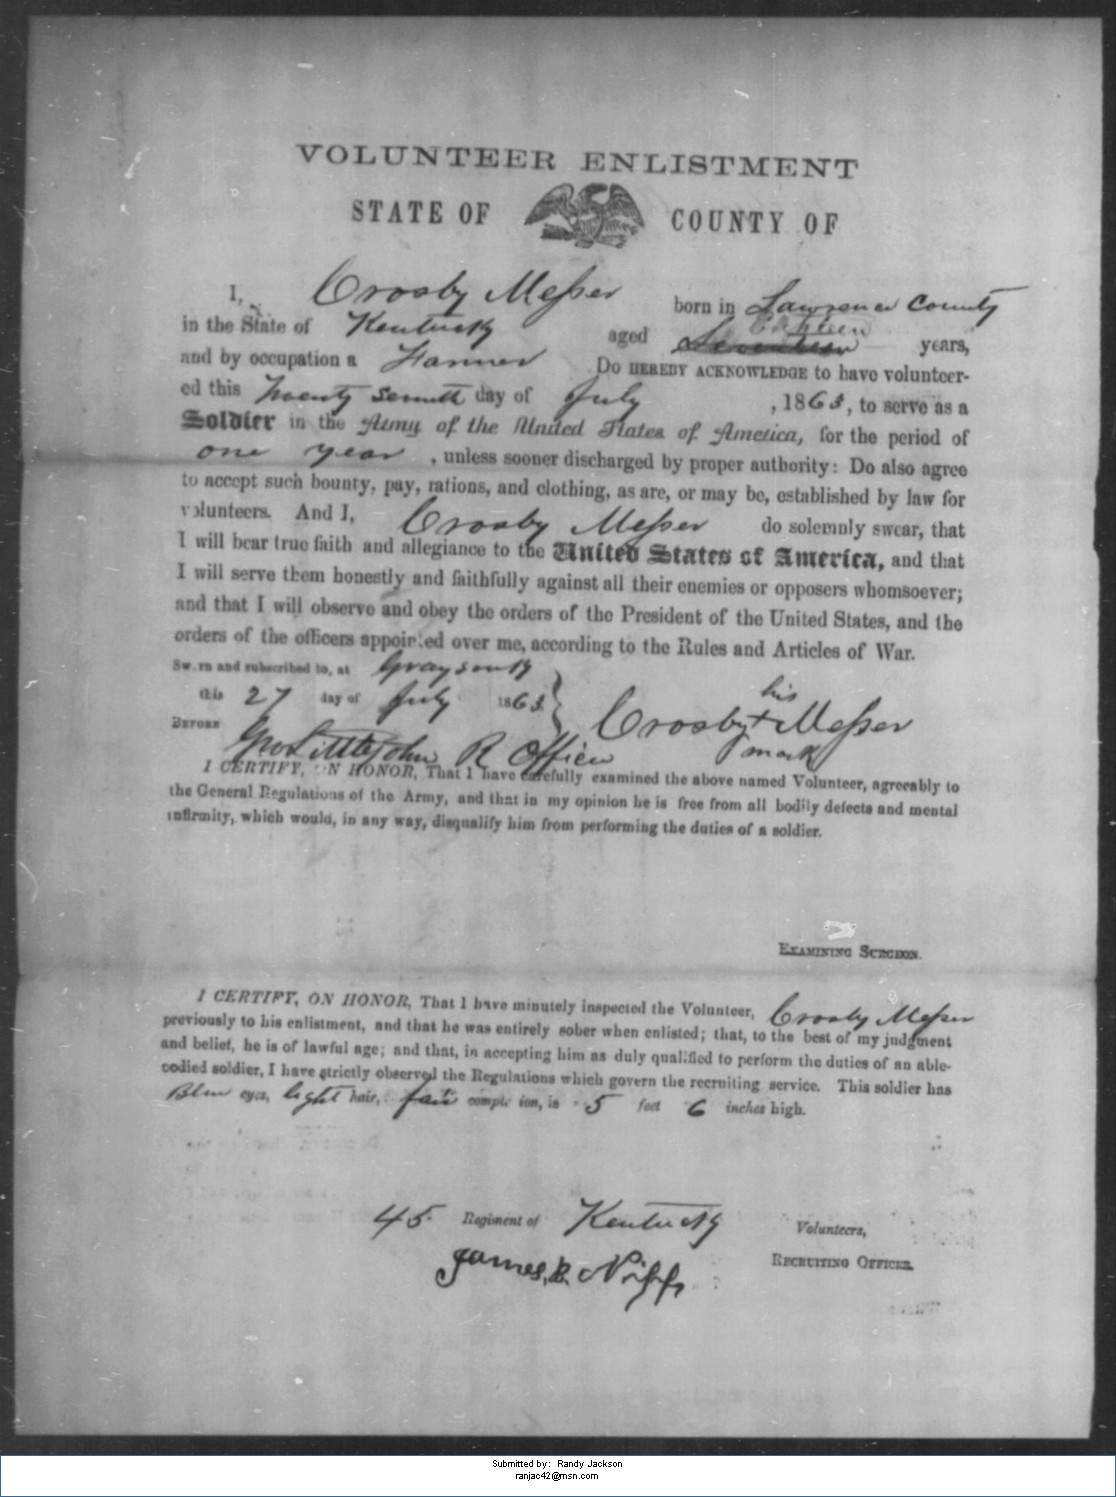 VOLUNTEER ENLISTMENT
STATE OF COUNTY OF
I, Crosby Messer born in Lawrence County
in the State of Kentucky aged Eighteen Seventeen years,
and by occupation a Farmer Do HEREBY ACKNOWLEDGE to have volunteer-
ed this Twenty Seventh day of July , 1863, to serve as a
Soldier in the Army of the United States of America, for the period of
one year , unless sooner discharged by proper authority: Do also agree
to accept such bounty, pay, rations, and clothing, as are, or may be, established by law for
volunteers. And I, Crosby Messer do solemnly swear, that
I will bear true faith and allegiance to the United States of America, and that
I will serve them honestly and faithfully against all their enemies or opposers whomsoever;
and that I will observe and obey the orders of the President of the United States, and the
orders of the officers appointed over me, according to the Rules and Articles of War.
Sworn and subscribed to, at Grayson Ky
this 27 day of July 1863.
his
Crosby + Messer
mark
BEFORE Geo Littlejohn R Officer
I CERTIFY, ON HONOR, That I have carefully examined the above named Volunteer, agreeably to
the General Regulations of the Army, and that in my opinion he is free from all bodily defects and mental
infirmity, which would, in any way, disqualify him from performing the duties of a soldier.
EXAMINING SURGEON.
I CERTIFY, ON HONOR, That I have minutely inspected the Volunteer, Crosby Messer
previously to his enlistment, and that he was entirely sober when enlisted; that, to the best of my judgment
and belief, he is of lawful age; and that, in accepting him as duly qualified to perform the duties of an able-
bodied soldier, I have strictly observed the Regulations which govern the recruiting service. This soldier has
Blue eyes, light hair, fair complexion, is 5 feet 6 inches high.
45 Regiment of Kentucky Volunteers,
James, B. RECRUITING OFFICER.
Submitted by: Randy Jackson
ranjac42@msn.com